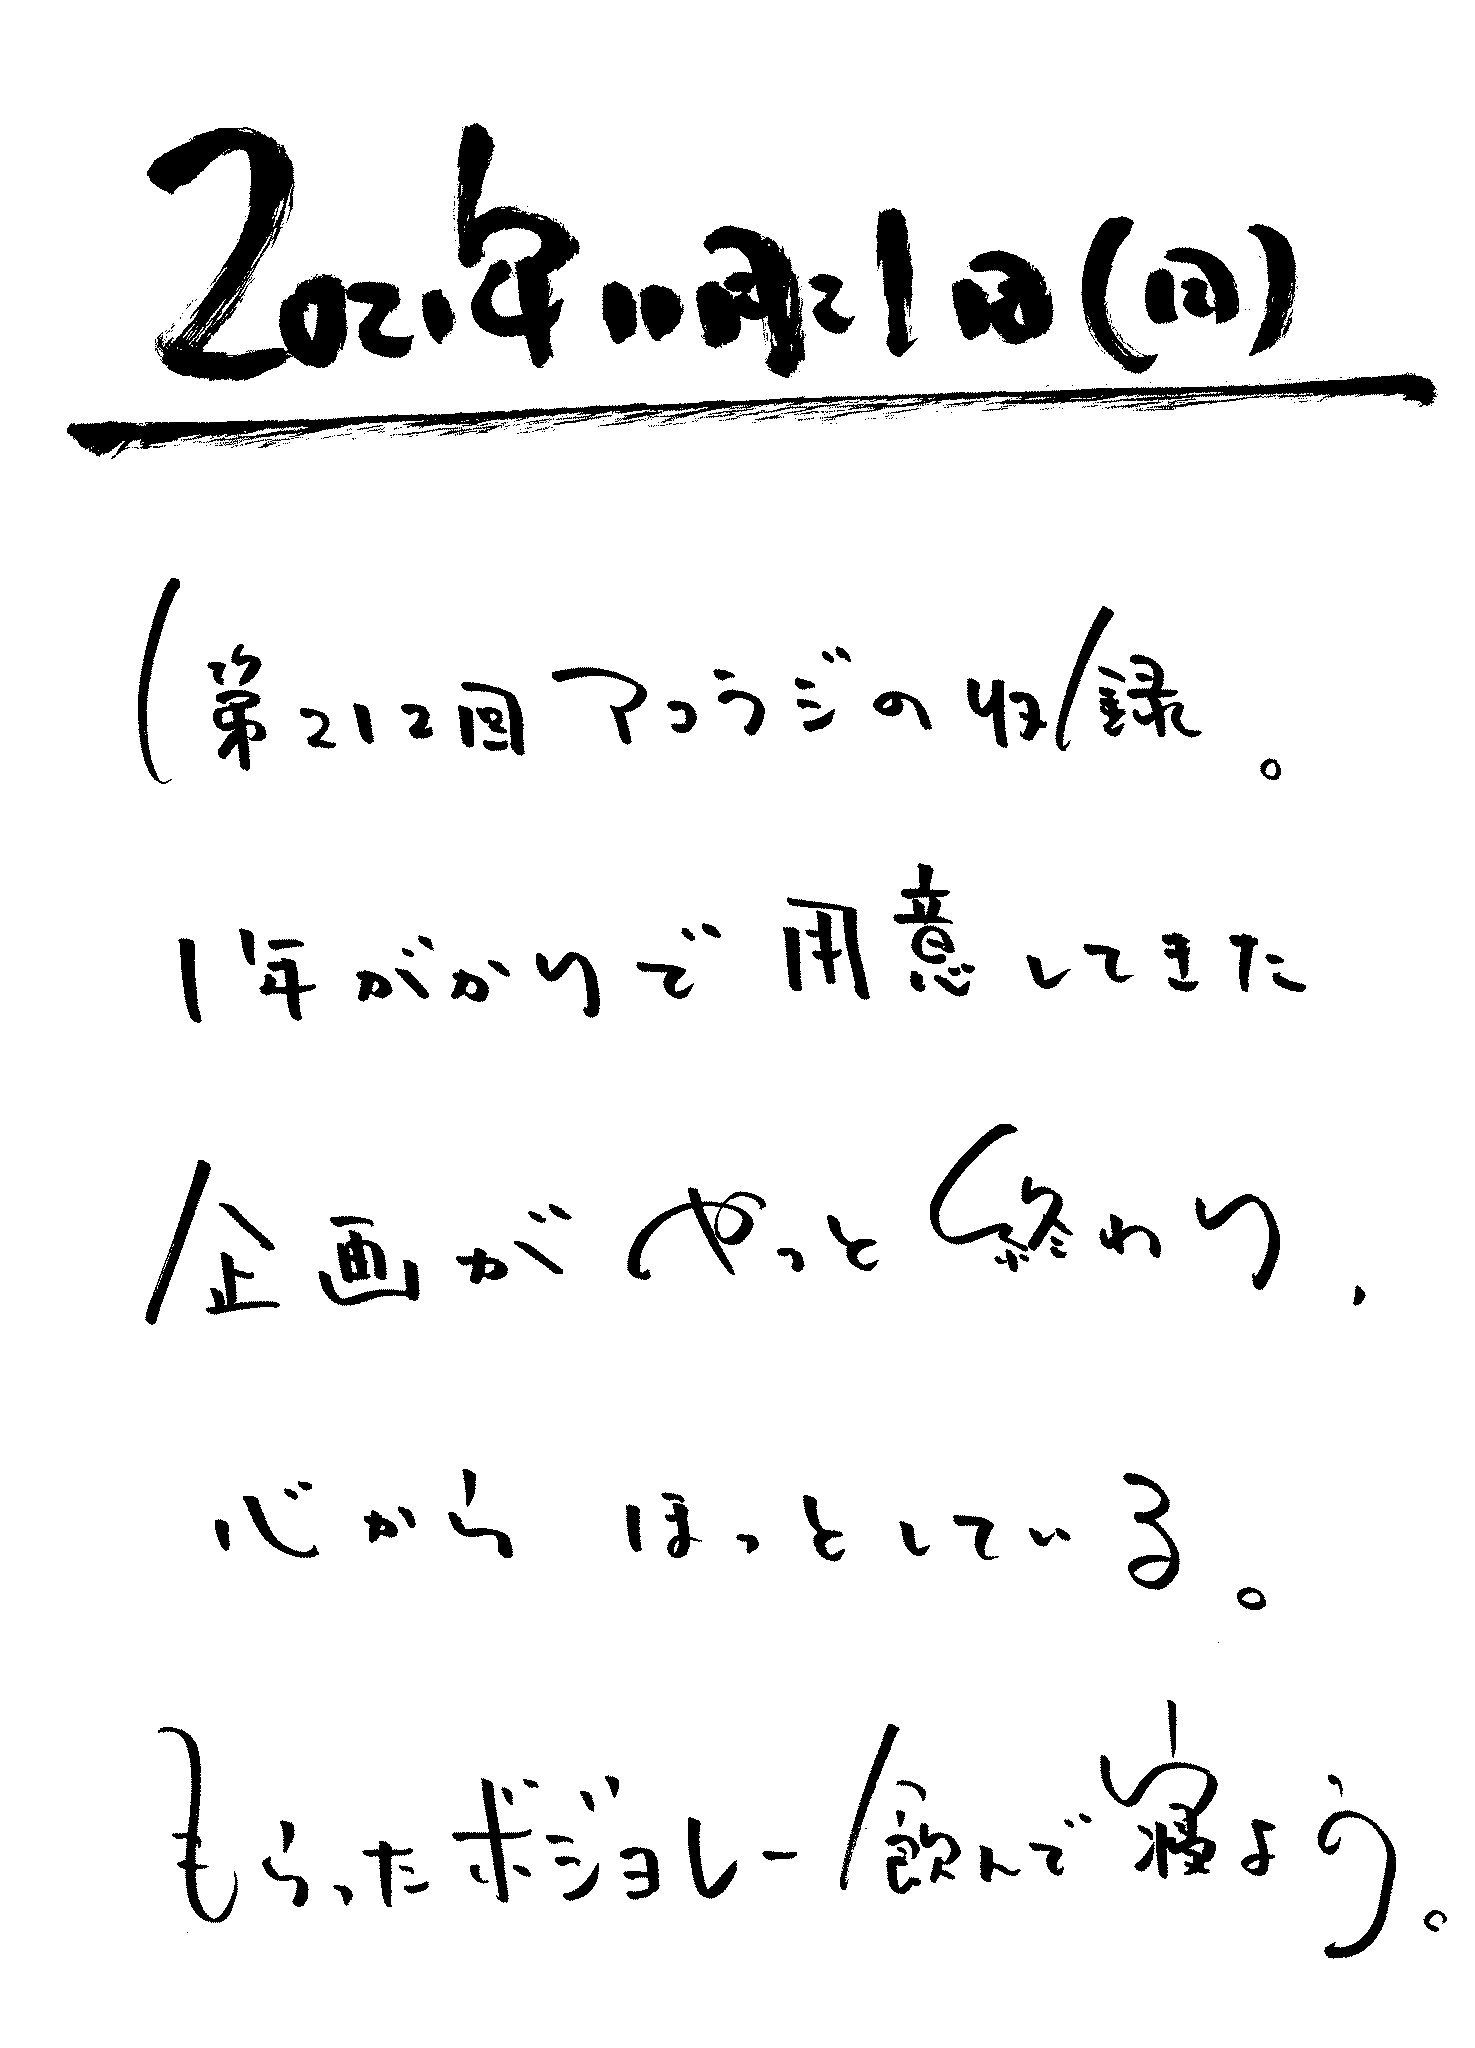 2021年11月21日(日)
第212回アコラジの収録。
1年がかりで用意してきた
企画がやっと終わり、
心からほっとしている。
もらったボジョレー飲んで寝よう。